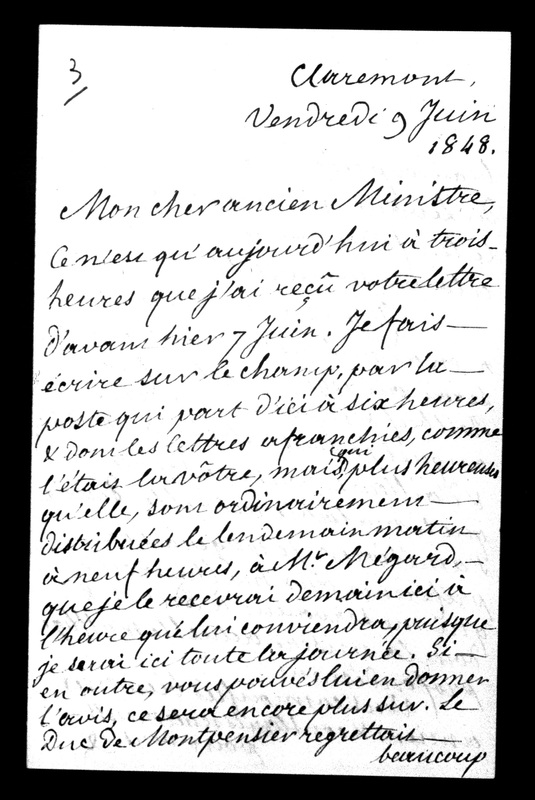 3
Claremont,
Vendredi 9 Juin
1848.
Mon cher ancien Ministre,
Ce n'est qu'aujourd'hui à trois
heures que j'ai reçû votre lettre
d'avant hier 7 Juin. Je fais
écrire sur le champ, par la
poste qui part d'ici à six heures,
& dont les lettres afranchies, comme
l'était la vôtre, mais qui, plus heureuses
qu'elle, sont ordinairement
distribuées le lendemain matin
à neuf heures, à Mr. Mégard,
que je le recevrai demain ici à
l'heure qui lui conviendra, puisque
je serai ici toute la journée. Si
en outre, vous pouvés lui en donner
l'avis, ce sera encore plus sur. Le
Duc de Montpensier regrettait
beaucoup